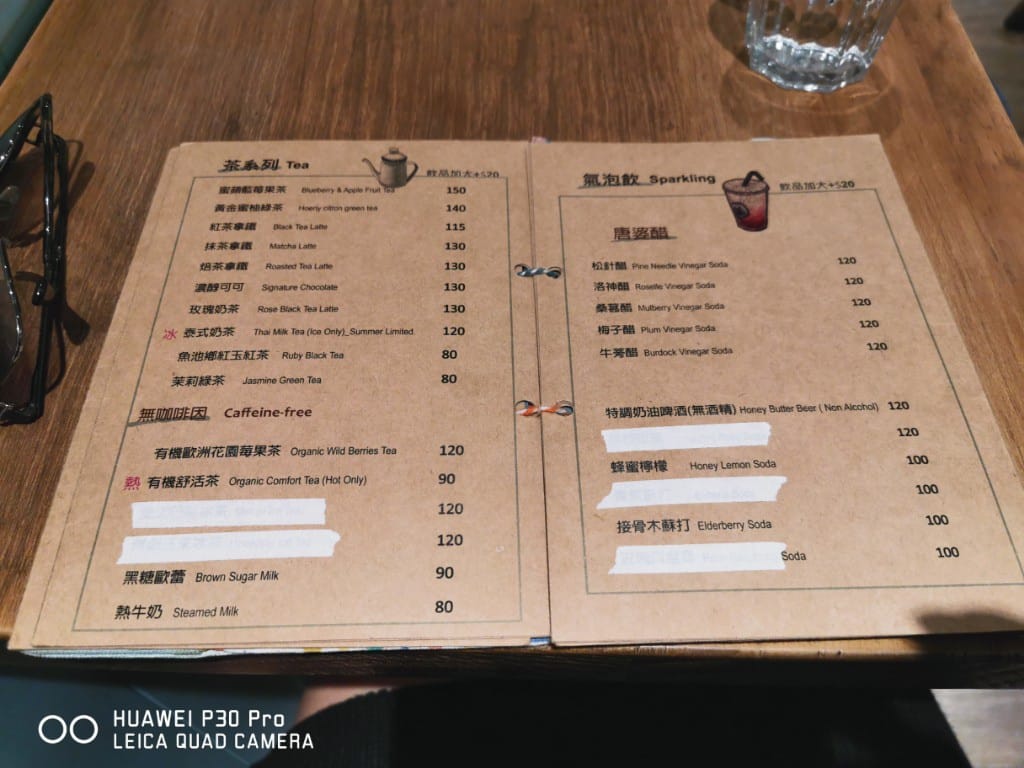 茶系列 Tea
飲品加大+$20
蜜蘋藍莓果茶 Blueberry & Apple Fruit Tea 150
黃金蜜柚綠茶 Hoeny citron green tea 140
紅茶拿鐵 Black Tea Latte 115
抹茶拿鐵 Matcha Latte 130
焙茶拿鐵 Roasted Tea Latte 130
濃醇可可 Signature Chocolate 130
玫瑰奶茶 Rose Black Tea Latte 130
冰 泰式奶茶 Thai Milk Tea (Ice Only)_Summer Limited. 120
魚池鄉紅玉紅茶 Ruby Black Tea 80
茉莉綠茶 Jasmine Green Tea 80
無咖啡因 Caffeine-free
有機歐洲花園莓果茶 Organic Wild Berries Tea 120
熱 有機舒活茶 Organic Comfort Tea (Hot Only) 90
120
120
黑糖歐蕾 Brown Sugar Milk 90
熱牛奶 Steamed Milk 80
氣泡飲 Sparkling
飲品加大+$20
唐婆醋
松針醋 Pine Needle Vinegar Soda 120
洛神醋 Roselle Vinegar Soda 120
桑葚醋 Mulberry Vinegar Soda 120
梅子醋 Plum Vinegar Soda 120
牛蒡醋 Burdock Vinegar Soda 120
特調奶油啤酒(無酒精) Honey Butter Beer ( Non Alcohol) 120
120
蜂蜜檸檬 Honey Lemon Soda 100
100
接骨木蘇打 Elderberry Soda 100
Soda 100
HUAWEI P30 Pro
LEICA QUAD CAMERA